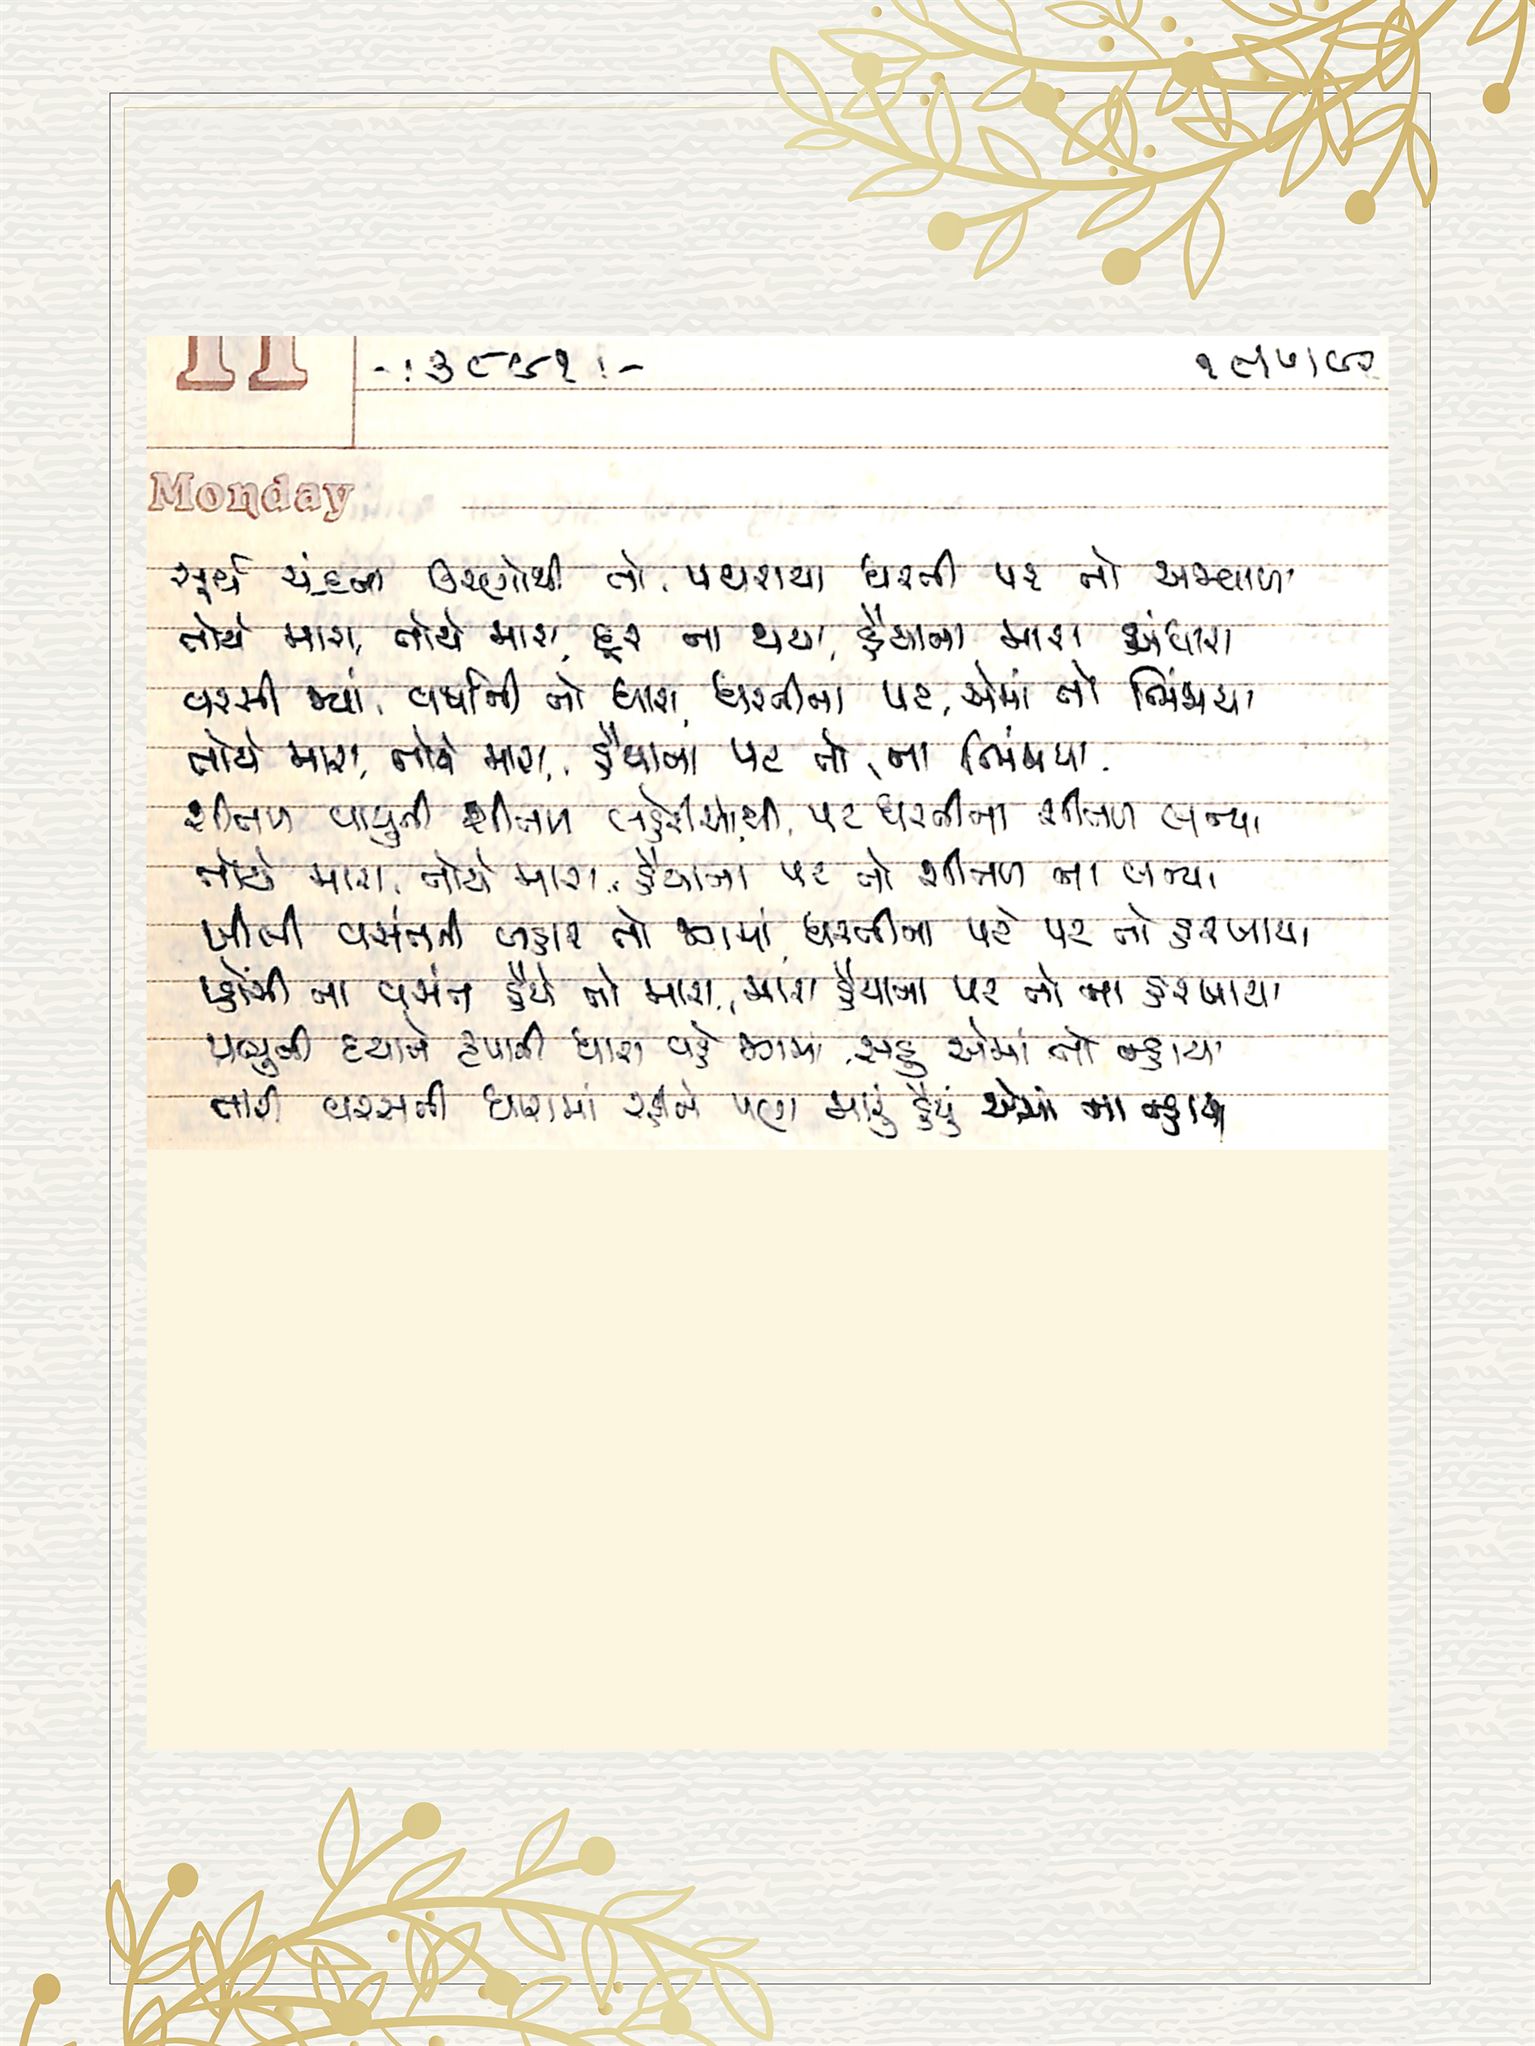 11
-:૩૯૯૧:-
૧૯/૫/૯૨
Monday
સૂર્ય ચંદ્રના કિરણોથી તો, પથરાયા ધરતી પર તો અજવાળા
તોયે મારા, તોયે મારા, દૂર ના થયા, હૈયાના મારા અંધારા
વરસી જ્યાં, વર્ષાની તો ધારા, ધરતીના પટ, એમાં તો ભિંજાયા
તોયે મારા, તોયે મારા, હૈયાના પટ તો, ના ભિંજાયા.
શીતળ વાયુની શીતળ લહેરીઓથી, પટ ધરતીના શીતળ બન્યા
તોયે મારા, તોયે મારા, હૈયાના પટ તો શીતળ ના બન્યા
ખીલી વસંતની બહાર તો જગમાં, ધરતીના પટે પટ તો હરખાયા
ના વસંત હૈયે તો મારા, મારા હૈયાના પટ તો ના હરખાયા
પ્રભુની દયાને કૃપાની ધારા વહે જગમાં, સહુ એમાં તો ન્હાયા
તારી વરસતી ધારામાં રહીને પણ મારું હૈયું એમાં ના ન્હાય